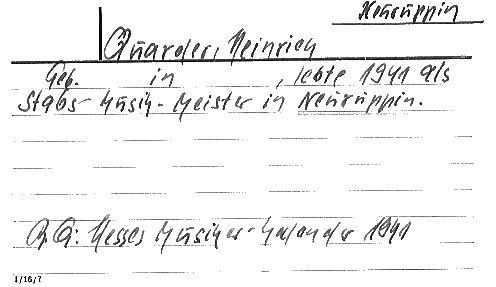 Neuruppin
Quarder, Heinrich
Geb. in , lebte 1941 als
Stabs-Musik-Meister in Neuruppin.
Qu: Hesses Musiker-Kalender 1941
1/16/7